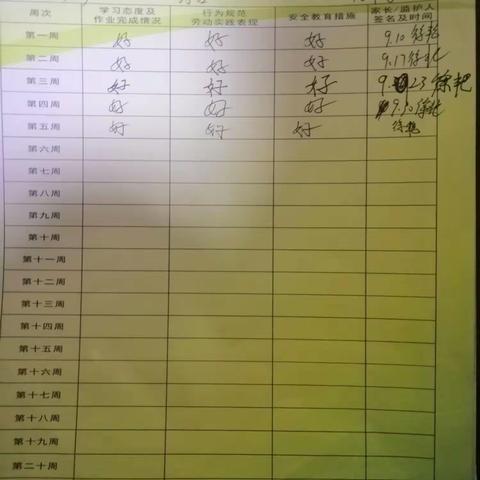 周次 学习态度及作业完成情况 行为规范劳动实践表现 安全教育措施 家长/监护人签名及时间
第一周 好 好 好 9.10
第二周 好 好 好 9.17
第三周 好 好 好 9.23 徐艳
第四周 好 好 好
第五周 好 好 好
第六周
第七周
第八周
第九周
第十周
第十一周
第十二周
第十三周
第十四周
第十五周
第十六周
第十七周
第十八周
第十九周
第二十周